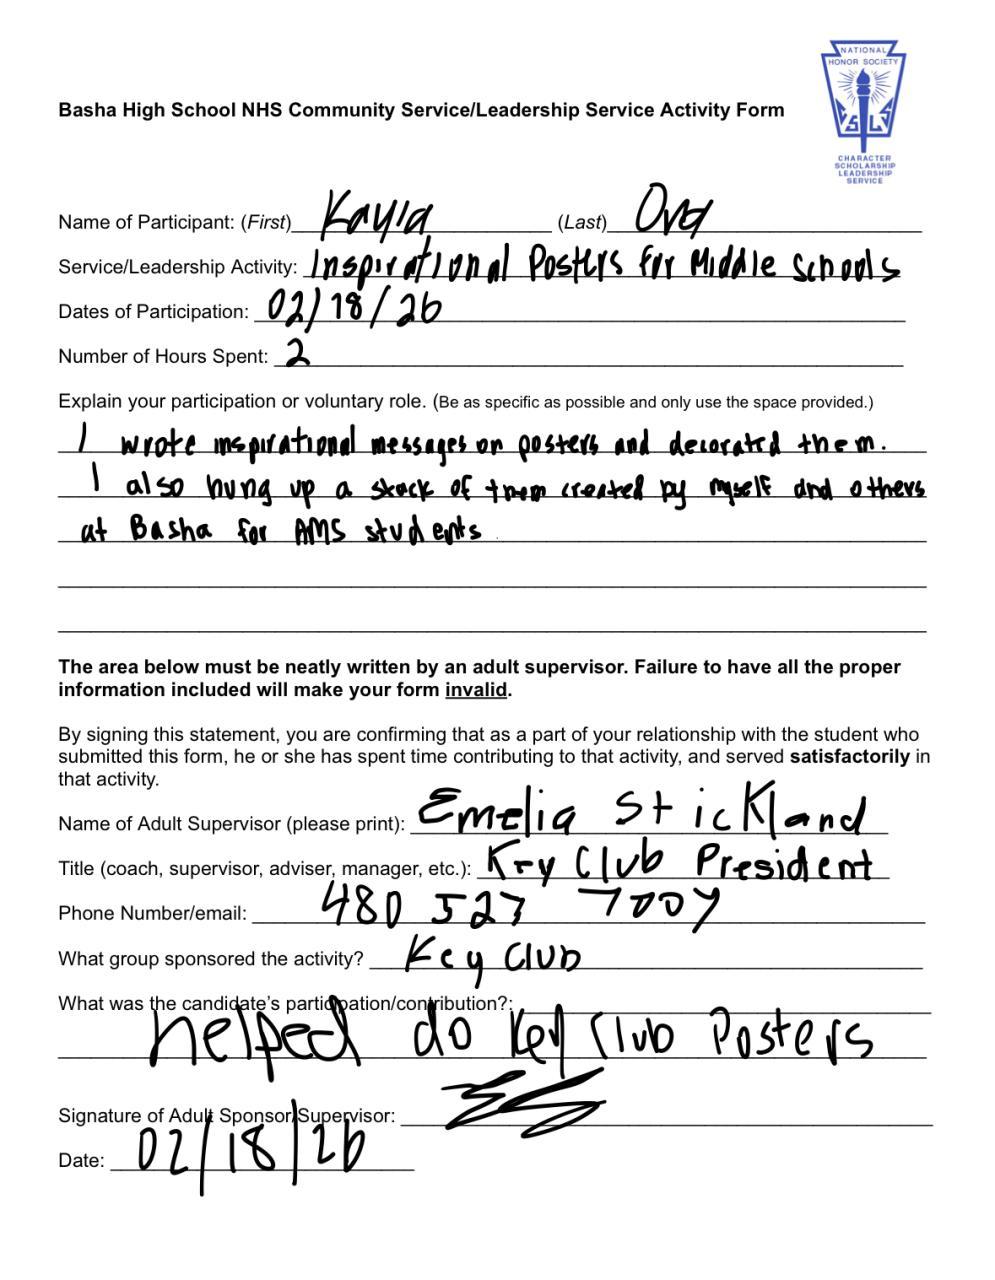 NATIONAL
HONOR SOCIETY
CHARACTER
SCHOLARSHIP
LEADERSHIP
SERVICE
Basha High School NHS Community Service/Leadership Service Activity Form
Name of Participant: (First) Kayla (Last) Ord
Service/Leadership Activity: Inspirational Posters for Middle Schools
Dates of Participation: 02/18/26
Number of Hours Spent: 2
Explain your participation or voluntary role. (Be as specific as possible and only use the space provided.)
I wrote inspirational messages on posters and decorated them.
I also hung up a stack of them created by myself and others
at Basha for AMS students
The area below must be neatly written by an adult supervisor. Failure to have all the proper
information included will make your form invalid.
By signing this statement, you are confirming that as a part of your relationship with the student who
submitted this form, he or she has spent time contributing to that activity, and served satisfactorily in
that activity.
Name of Adult Supervisor (please print): Emelia Stickland
Title (coach, supervisor, adviser, manager, etc.): Key Club President
Phone Number/email: 480 527 7007
What group sponsored the activity? Key Club
What was the candidate's participation/contribution?:
helped do Key Club Posters
Signature of Adult Sponsor/Supervisor:
Date: 02/18/26